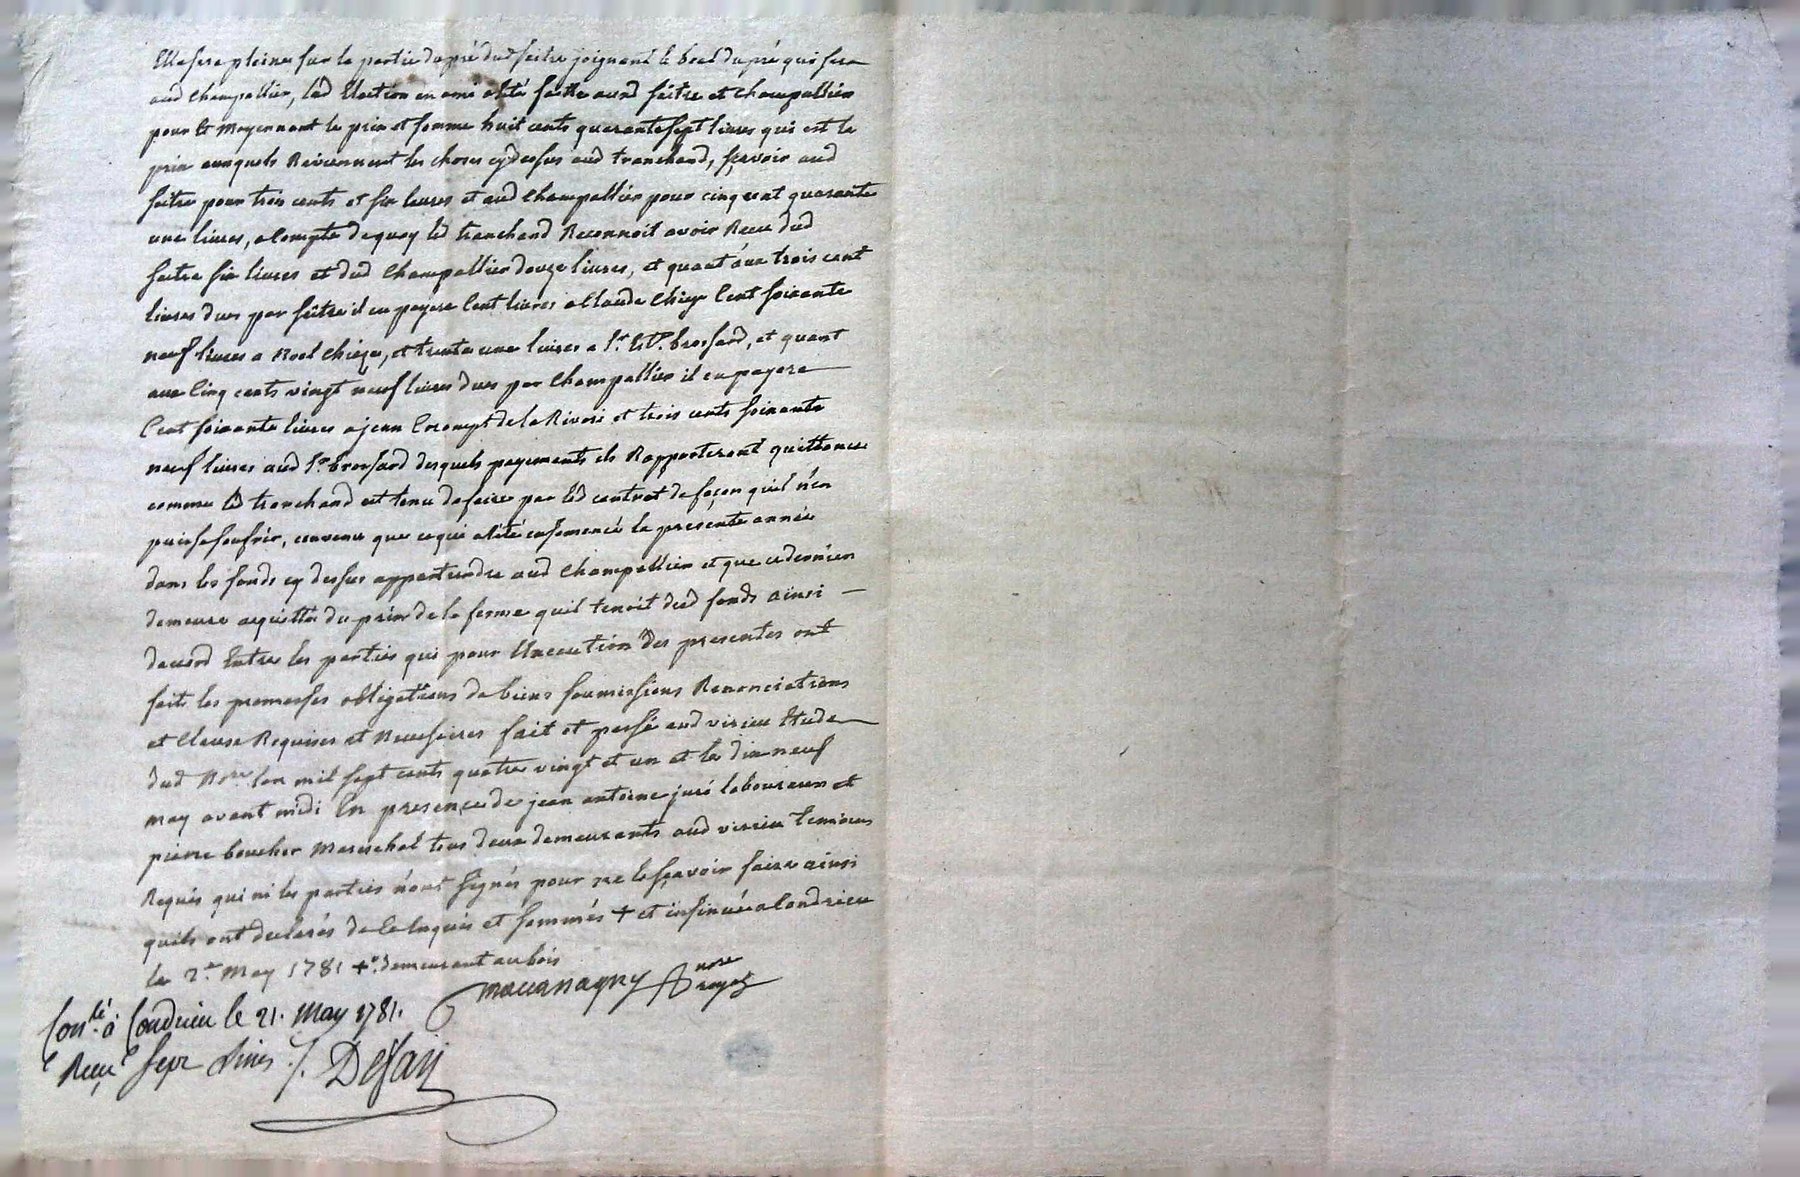 Elle sera plainne sur la partie du pré dud faitre joignant le bout du pré qui sera
aud Champallier, lad Election en ami a été faitte aud faitre et Champallier
pour et moyennant le prix et somme huit cents quarante sept livres qui est le
prix auxquels Reviennent les choses cy dessus aud tranchand, sçavoir aud
faitre pour trois cents et six livres et aud Champallier pour cinq cent quarante
une livres, a Compte de quoy led tranchand Reconnoit avoir Receu dud
faitre six livres et dud Champallier douze livres, et quant aux trois cent
livres dues par faitre il en payera Cent livres a Claude Chieze Cent soixante
neuf livres a Noel Chieze, et trente une livres a Sr. brossard, et quant
aux Cinq cents vingt neuf livres dues par Champallier il en payera
Cent soixante livres a jean de la Rivori et trois cents soixante
neuf livres aud Sr brossard desquels payements ils Rapporteront quittance
comme led tranchand est tenu de faire par led contrat de façon quil n'en
puisse soufrir, convenu que ce qui a été ensemencé la presente année
dans les fonds cy dessus appartiendra aud Champallier et que ce dernier
demeure acquitté du prix de la ferme quil tenoit desd fonds ainsi
dacord Entre les parties qui pour l'Execution des presentes ont
fait les promesses obligations de biens soumissions Renonciations
et Clause Requises et Necessaires fait et passé aud virieu Etude
dud Nore. l'an mil sept cents quatre vingt et un et le dix neuf
may avant midi En presence de jean antoine juré laboureur et
pierre boucher Mareschal tous deux demeurants aud virieu temoins
Requis qui ni les parties n'ont signés pour ne le sçavoir faire ainsi
quils ont declarés de ce Enquis et sommés + et insinué a Condrieu
le 2. May 1781 +. demeurant au bois
nore
royal
Conlé. à Condrieu le 21. May 1781.
Reçu sept livres ./. Defay